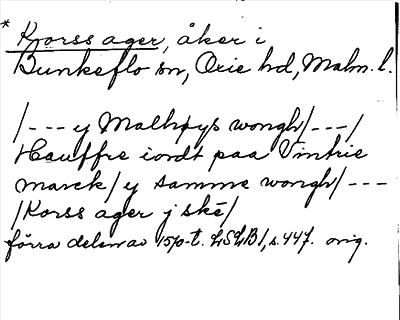 * Korss ager, åker i
Bunkeflo sn, Oxie hd, Malm. l.
/--- y Malhøys wongh/---/
Hauffre iordt paa Vintrie
marck/ y samme wongh/---
/Korss ager j skē/
förra delen av 1570-t. LSLB 1, s. 447. orig.